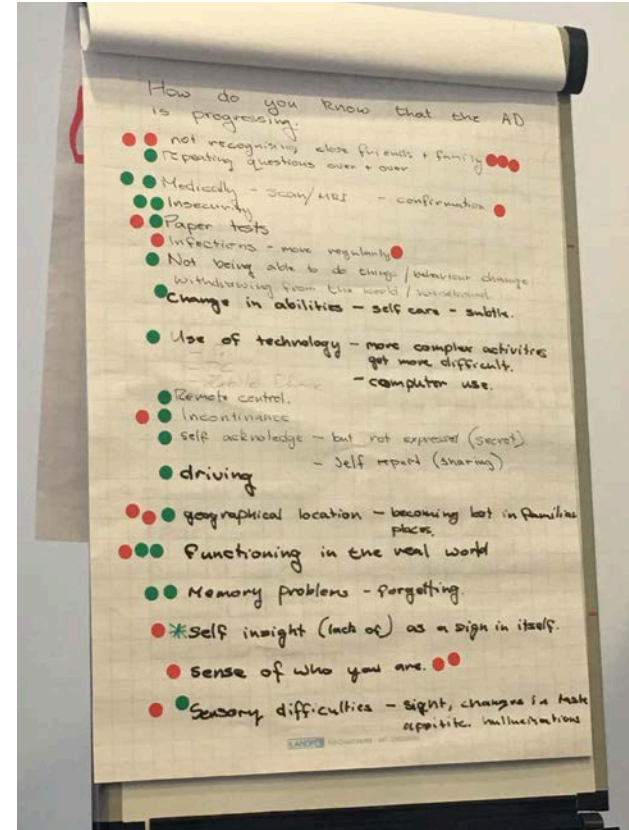 How do you know that the AD
is progressing.
not recognising close friends + family
repeating questions over + over
Medically - scan/MRI - confirmation
Insecurity
Paper tests
Infections - more regularly
Not being able to do things / behaviour change
withdrawing from the world /
Change in abilities - self care - subtle.
Use of technology - more complex activities
get more difficult.
- computer use.
Remote control.
Incontinance
Self acknoledge - but not expressed (secret)
- Self report (sharing)
driving
geographical location - becoming lost in familiar
places.
Functioning in the real world
Memory problems - forgetting.
*Self insight (lack of) as a sign in itself.
Sense of who you are.
Sensory difficulties - sight, changes in taste
apitite. hullucinations